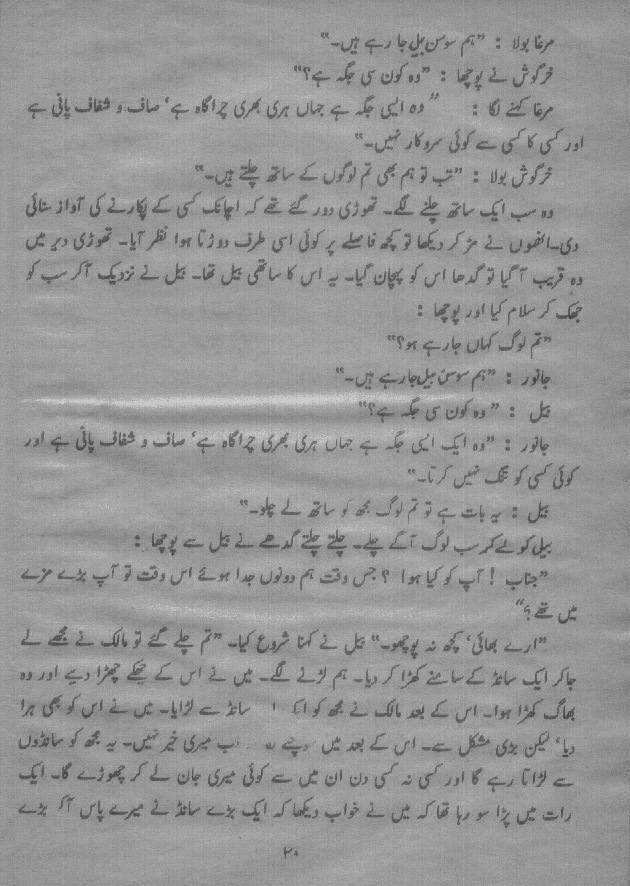 مرغا بولا : ”ہم سوسن بیل جا رہے ہیں۔“
خرگوش نے پوچھا : ”وہ کون سی جگہ ہے؟“
مرغا کہنے لگا : ”وہ ایسی جگہ ہے جہاں ہری بھری چراگاہ ہے‘ صاف و شفاف پانی ہے
اور کسی کا کسی سے کوئی سروکار نہیں۔“
خرگوش بولا : ”تب تو ہم بھی تم لوگوں کے ساتھ چلتے ہیں۔“
وہ سب ایک ساتھ چلنے لگے۔ تھوڑی دور گئے تھے کہ اچانک کسی کے پکارنے کی آواز سنائی
دی۔ انھوں نے مڑ کر دیکھا تو کچھ فاصلے پر کوئی اسی طرف دوڑتا ہوا نظر آیا۔ تھوڑی دیر میں
وہ قریب آ گیا تو گدھا اس کو پہچان گیا۔ یہ اس کا ساتھی بیل تھا۔ بیل نے نزدیک آ کر سب کو
جھک کر سلام کیا اور پوچھا :
”تم لوگ کہاں جا رہے ہو؟“
جانور : ”ہم سوسن بیل جا رہے ہیں۔“
بیل : ”وہ کون سی جگہ ہے؟“
جانور : ”وہ ایک ایسی جگہ ہے جہاں ہری بھری چراگاہ ہے‘ صاف و شفاف پانی ہے اور
کوئی کسی کو تنگ نہیں کرتا۔“
بیل : یہ بات ہے تو تم لوگ مجھ کو ساتھ لے چلو۔“
بیل کو لے کر سب لوگ آگے چلے۔ چلتے چلتے گدھے نے بیل سے پوچھا :
”جناب ! آپ کو کیا ہوا ؟ جس وقت ہم دونوں جدا ہوئے اس وقت تو آپ بڑے مزے
میں تھے؟“
”ارے بھائی‘ کچھ نہ پوچھو۔“ بیل نے کہنا شروع کیا۔ ”تم چلے گئے تو مالک نے مجھے لے
جا کر ایک سانڈ کے سامنے کھڑا کر دیا۔ ہم لڑنے لگے۔ میں نے اس کے چھکے چھڑا دیے اور وہ
بھاگ کھڑا ہوا۔ اس کے بعد مالک نے مجھ کو سانڈ سے لڑایا۔ میں نے اس کو بھی ہرا
دیا‘ لیکن بڑی مشکل سے۔ اس کے بعد میں اب میری خیر نہیں۔ یہ مجھ کو سانڈوں
سے لڑاتا رہے گا اور کسی نہ کسی دن ان میں سے کوئی میری جان لے کر چھوڑے گا۔ ایک
رات میں پڑا سو رہا تھا کہ میں نے خواب دیکھا کہ ایک بڑے سانڈ نے میرے پاس آ کر بڑے
۲۰